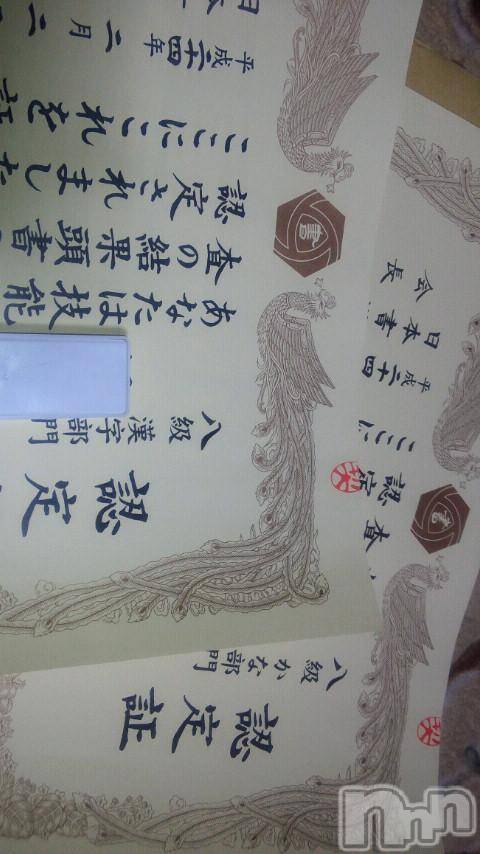 認定
八級 漢字部門
あなたは技能
査の結果頭書
認定されました
ここにこれを証
平成二十四年 二月 二
日本
書
認定証
八級 かな部門
査
認定
ここに
平成二十四
日本書
会長
書